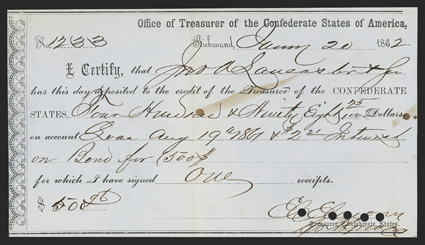 Office of Treasurer of the Confederate States of America,
No. 1233 Richmond, Jany 20 1862
I Certify, that Jno A Lancaster & Son
has this day deposited to the credit of the Treasurer of the CONFEDERATE
STATES, Four Hundred & Ninety Eight 25/100 Dollars
on account Loan Aug 19th 1861 & Interest
on Bond for 500$
for which I have signed One receipts.
$ 500
Treasurer Confederate States.